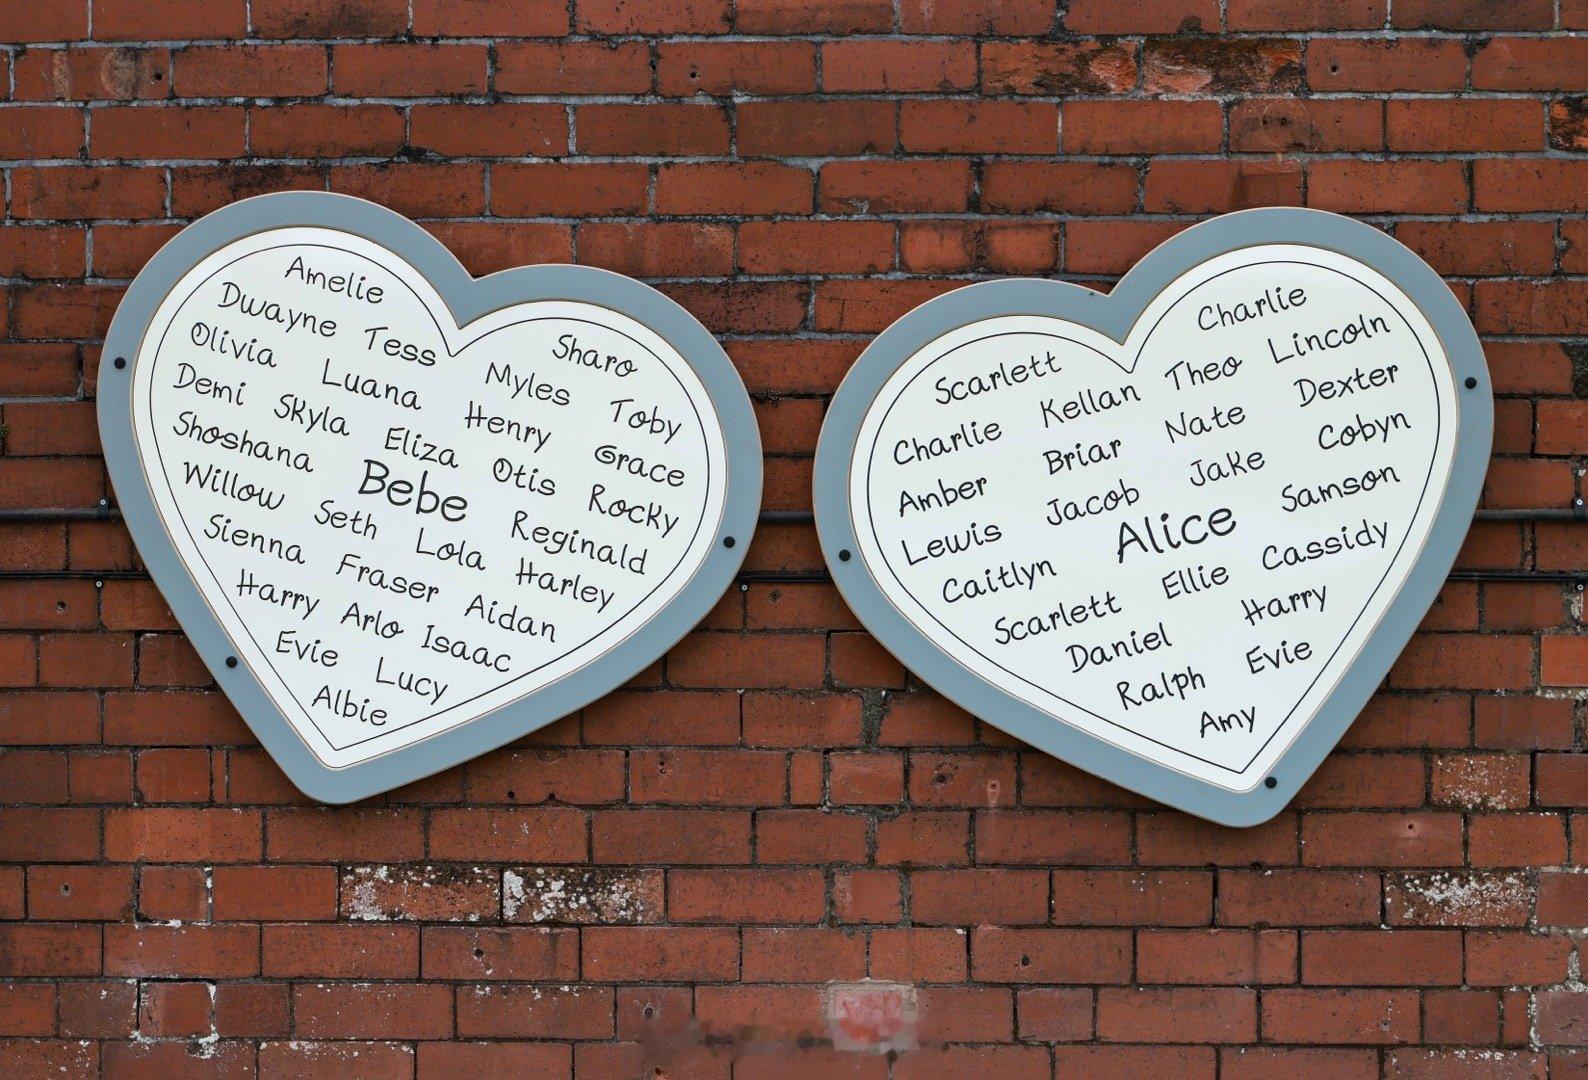 Amelie
Dwayne Tess Sharo
Olivia Luana Myles Toby
Demi Skyla Henry Grace
Shoshana Eliza Otis Rocky
Willow Bebe Reginald
Sienna Seth Lola Harley
Harry Fraser Aidan
Evie Arlo Isaac
Albie Lucy
Charlie
Scarlett Theo Lincoln
Charlie Kellan Nate Dexter
Amber Briar Jake Cobyn
Lewis Jacob Alice Samson
Caitlyn Ellie Cassidy
Scarlett Harry
Daniel Evie
Ralph
Amy